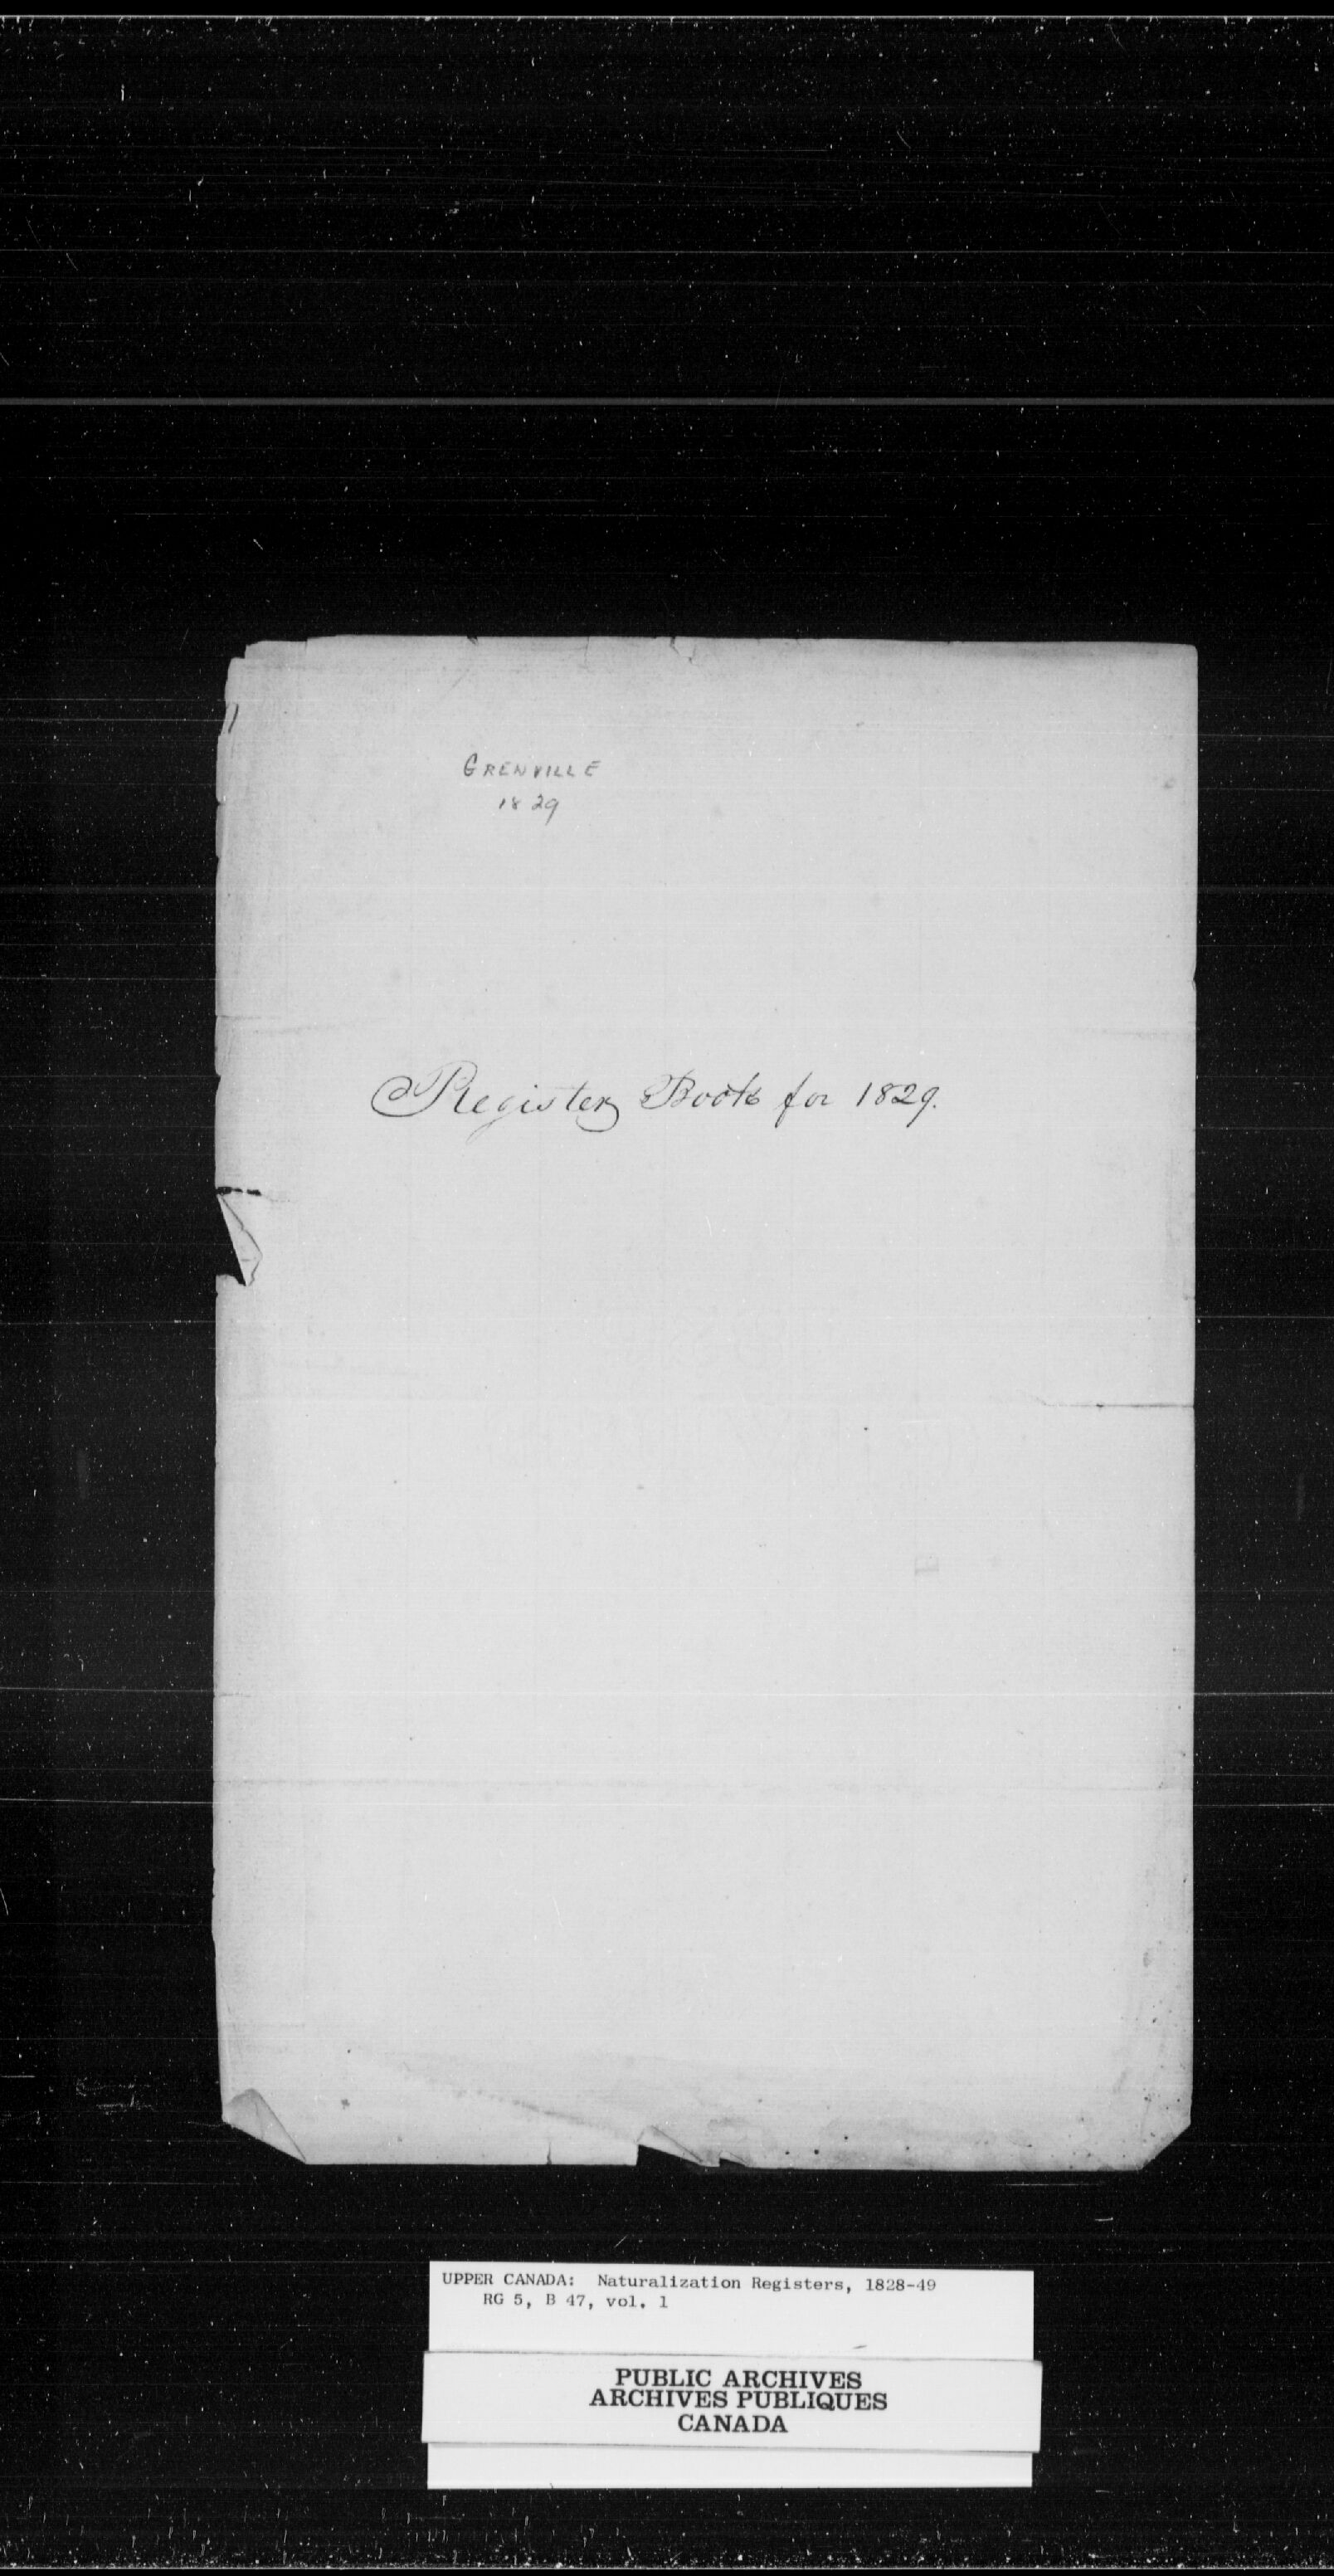 GRENVILLE
1829
Register Book for 1829.
UPPER CANADA: Naturalization Registers, 1828-49
RG 5, B 47, vol. 1
PUBLIC ARCHIVES
ARCHIVES PUBLIQUES
CANADA